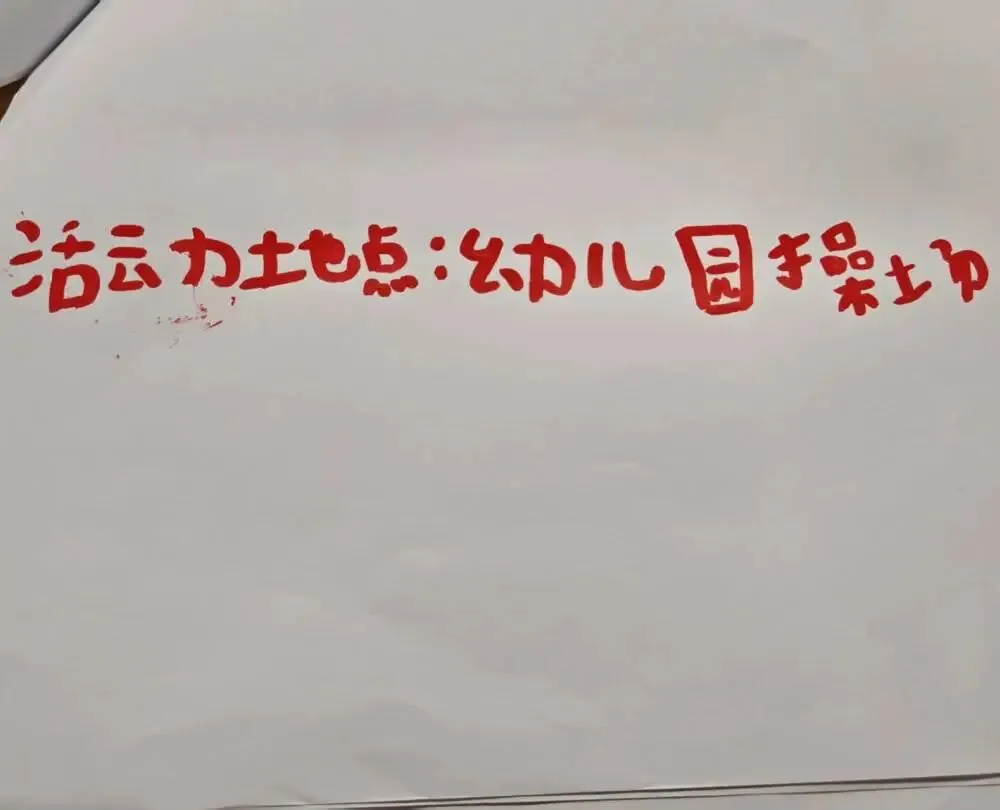 活动地点:幼儿园操场